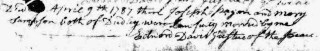 April 9th 1787 that Joseph and mary
Simpson both of Dudley ware Lawfully married by me
Edward Davis Justice of the peace